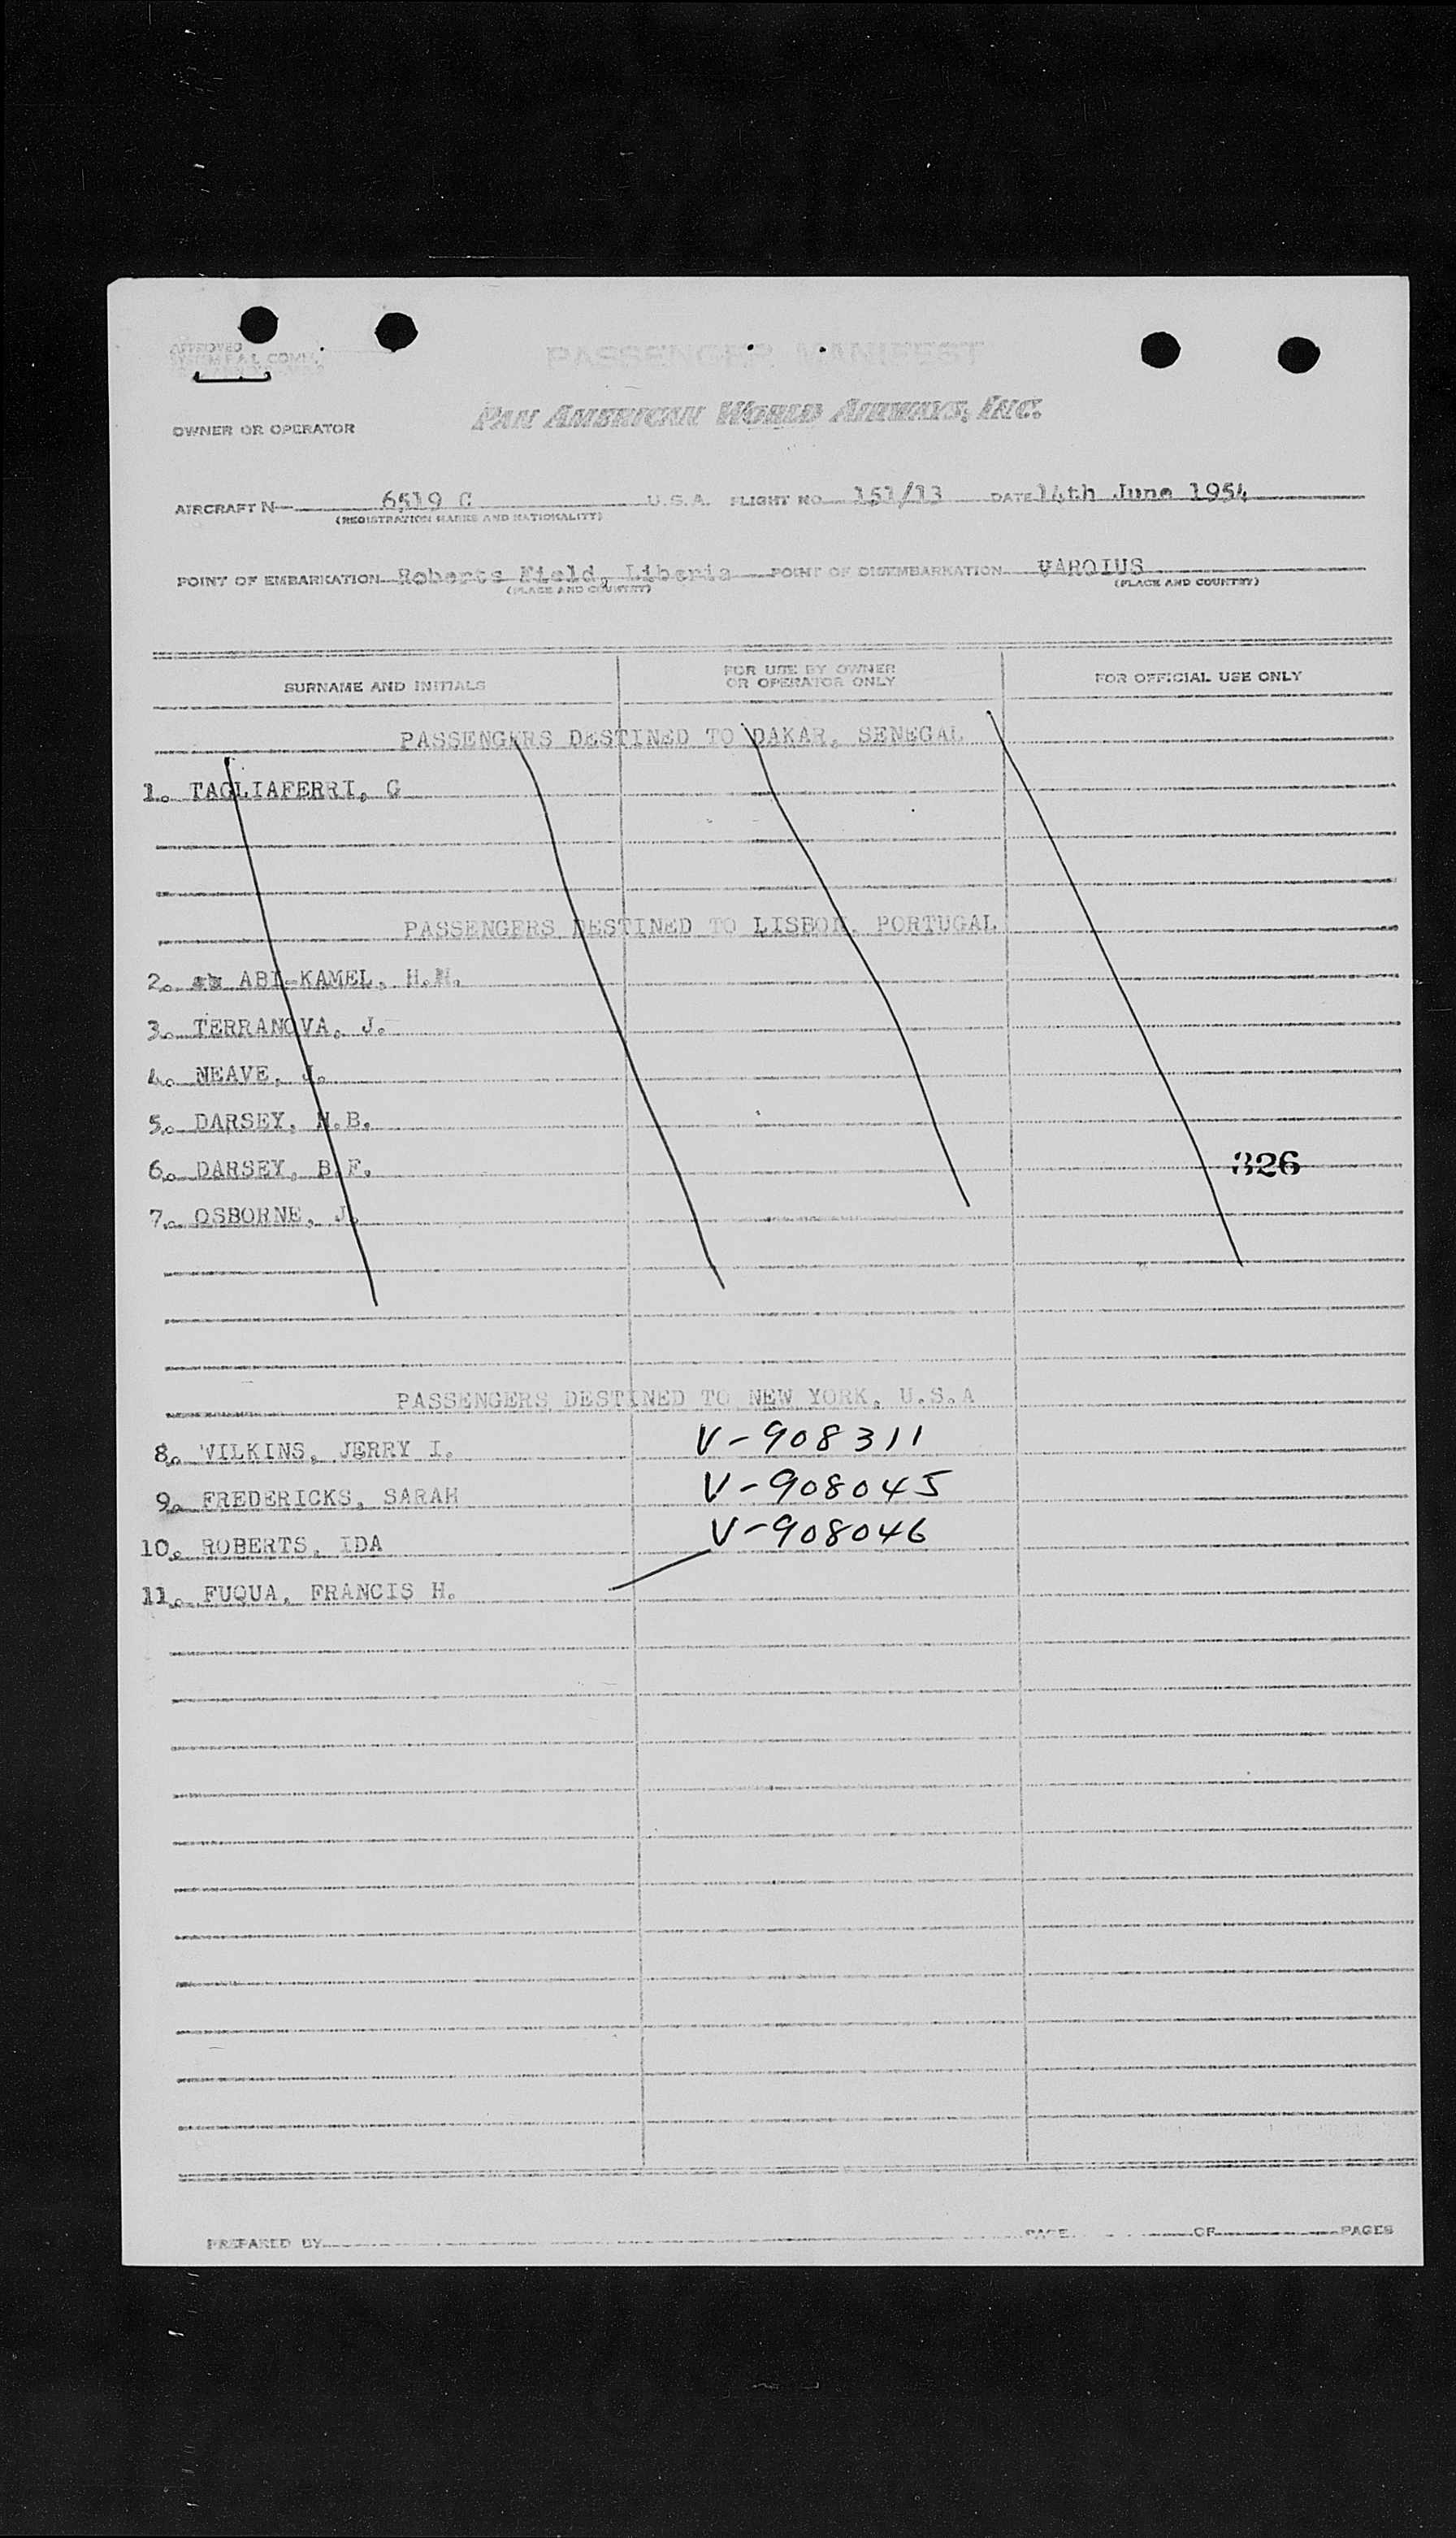 APPROVED
SYSTEM F.A.L. COMM.
PASSENGER MANIFEST
OWNER OR OPERATOR PAN AMERICAN WORLD AIRWAYS, INC.
AIRCRAFT N 6519 C U.S.A. FLIGHT NO. 151/13 DATE 14th June 1954
(REGISTRATION MARKS AND NATIONALITY)
POINT OF EMBARKATION Roberts Field, Liberia POINT OF DISEMBARKATION VAROIUS
(PLACE AND COUNTRY) (PLACE AND COUNTRY)
SURNAME AND INITIALS FOR USE BY OWNER OR OPERATOR ONLY FOR OFFICIAL USE ONLY
PASSENGERS DESTINED TO DAKAR, SENEGAL
1. TAGLIAFERRI, G
PASSENGERS DESTINED TO LISBON, PORTUGAL
2. ABI-KAMEL, H.N.
3. TERRANOVA, J.
4. NEAVE, J.
5. DARSEY, H.B.
6. DARSEY, B.F. 326
7. OSBORNE, J.
PASSENGERS DESTINED TO NEW YORK, U.S.A
8. WILKINS, JERRY I. V-908311
9. FREDERICKS, SARAH V-908045
10. ROBERTS, IDA V-908046
11. FUQUA, FRANCIS H.
PREPARED BY PAGE OF PAGES